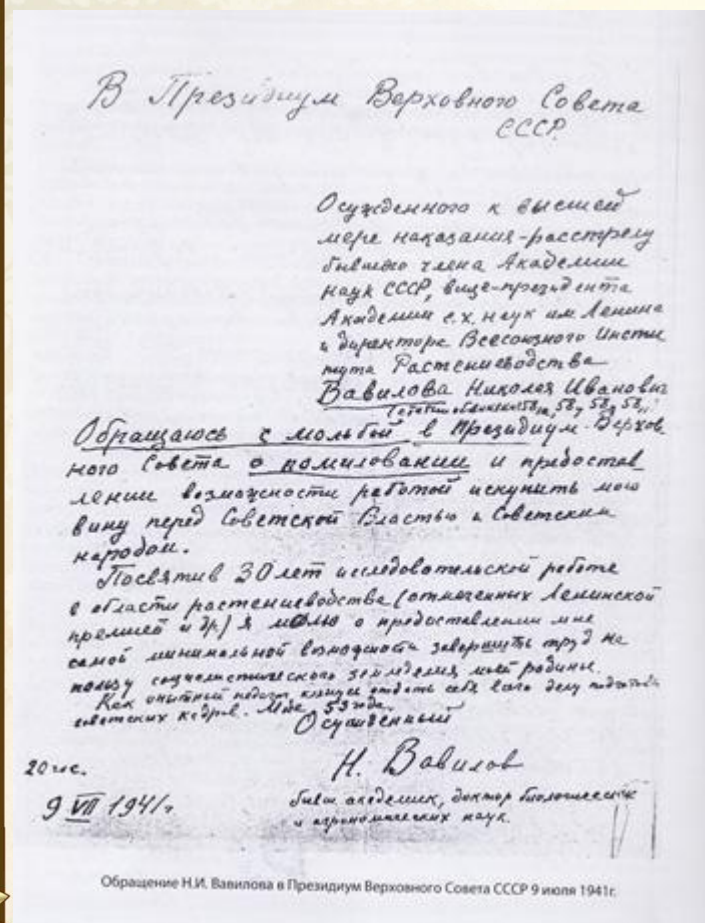 В Президиум Верховного Совета
СССР.
Осужденного к высшей
мере наказания-расстрелу
бывшего члена Академии
наук СССР, вице-президента
Академии с.х. наук им Ленина
и директора Всесоюзного Инсти
тута Растениеводства
Вавилова Николая Ивановича
Обращаюсь с мольбой в Президиум Верхов
ного Совета о помиловании и предостав
лении возможности работой искупить мою
вину перед Советской Властью и Советским
народом.
Посвятив 30 лет исследовательской работе
в области растениеводства (отмеченных Ленинской
премией и др) я молю о предоставлении мне
самой минимальной возможности завершить труд на
пользу социалистического земледелия моей родины.
Как опытный педагог клянусь отдать себя всего делу подготовки
советских кадров. Мне 53 года.
Осужденный
20 час.
Н. Вавилов
9 VII 1941г
бывш. академик, доктор биологических
и агрономических наук.
Обращение Н.И. Вавилова в Президиум Верховного Совета СССР 9 июля 1941г.